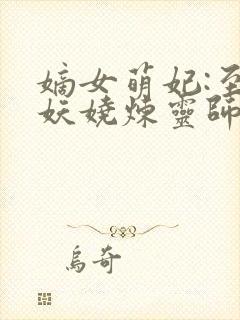 嫡女萌妃:至
妖娆炼靈師
烏奇